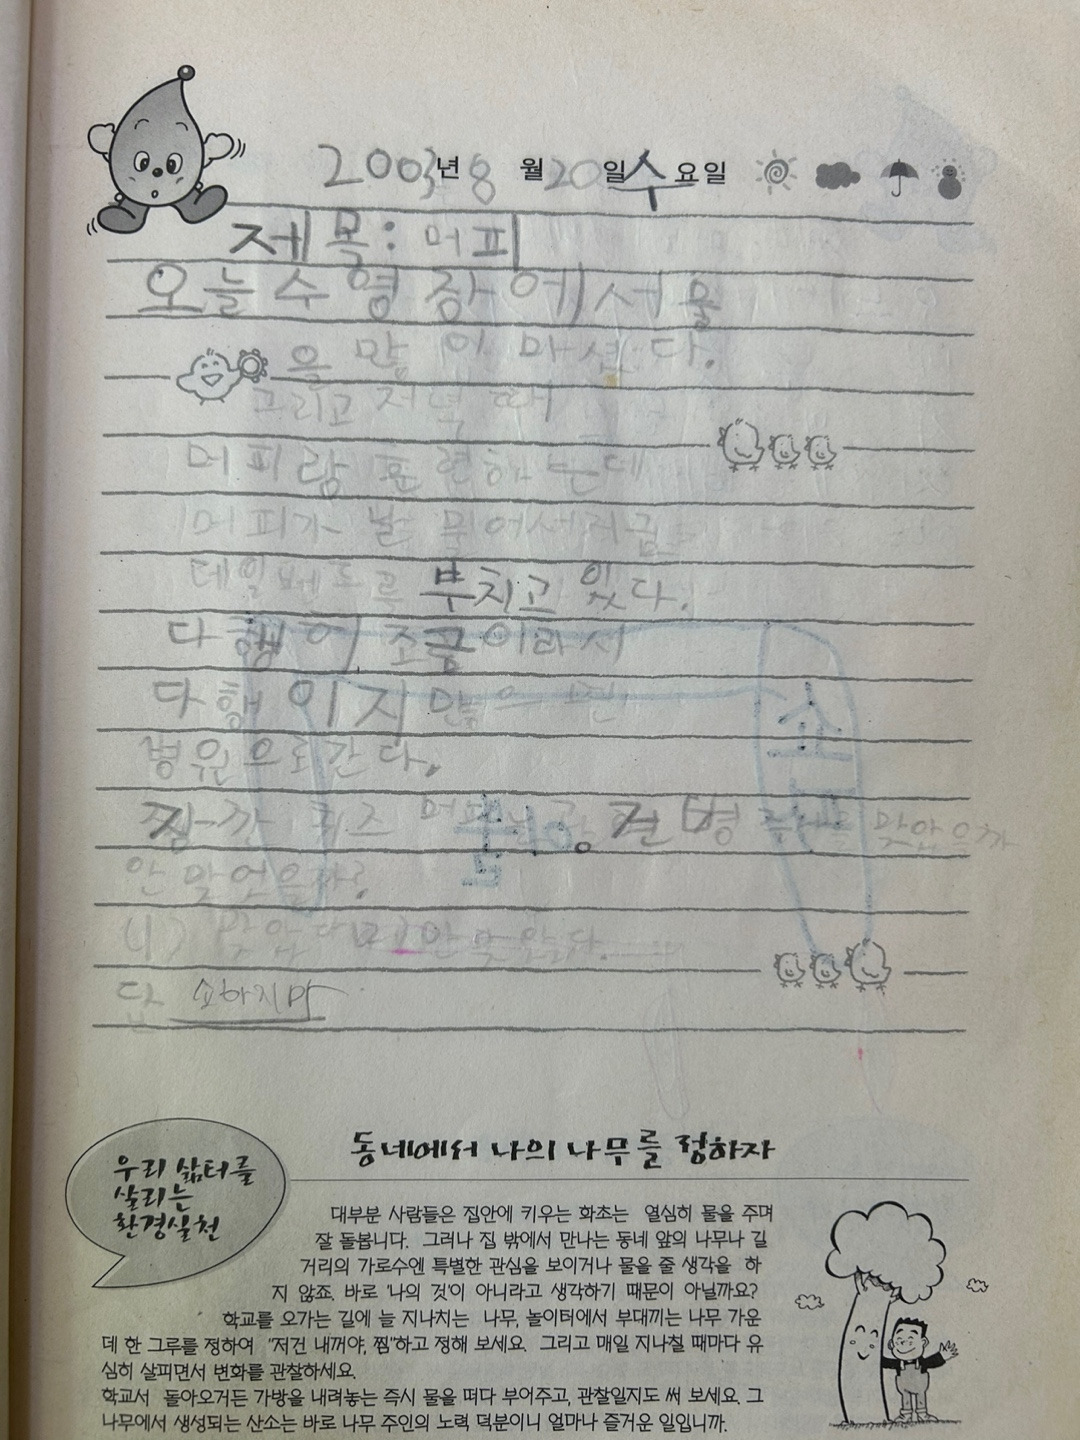 2003년 8월 20일 수요일
제목: 머피
오늘 수영장에서 물
을 많이 마셨다.
그리고 저녁 때
머피랑 훈련하는데
머피가 날 물어서 지금
데일밴드를 부치고 있다.
다행이 조금이라서
다행이지 많으면
병원으로 간다.
깜짝 퀴즈 머피는 광견병 주사를 맞았을까
안 맞었을까?
(1) 맞았다 (2) 안 맞았다.
답
동네에서 나의 나무를 정하자
우리 삶터를
살리는
환경실천
대부분 사람들은 집안에 키우는 화초는 열심히 물을 주며
잘 돌봅니다. 그러나 집 밖에서 만나는 동네 앞의 나무나 길
거리의 가로수엔 특별한 관심을 보이거나 물을 줄 생각을 하
지 않죠. 바로 '나의 것'이 아니라고 생각하기 때문이 아닐까요?
학교를 오가는 길에 늘 지나치는 나무, 놀이터에서 부대끼는 나무 가운
데 한 그루를 정하여 "저건 내꺼야, 찜"하고 정해 보세요. 그리고 매일 지나칠 때마다 유
심히 살피면서 변화를 관찰하세요.
학교서 돌아오거든 가방을 내려놓는 즉시 물을 떠다 부어주고, 관찰일지도 써 보세요. 그
나무에서 생성되는 산소는 바로 나무 주인의 노력 덕분이니 얼마나 즐거운 일입니까.